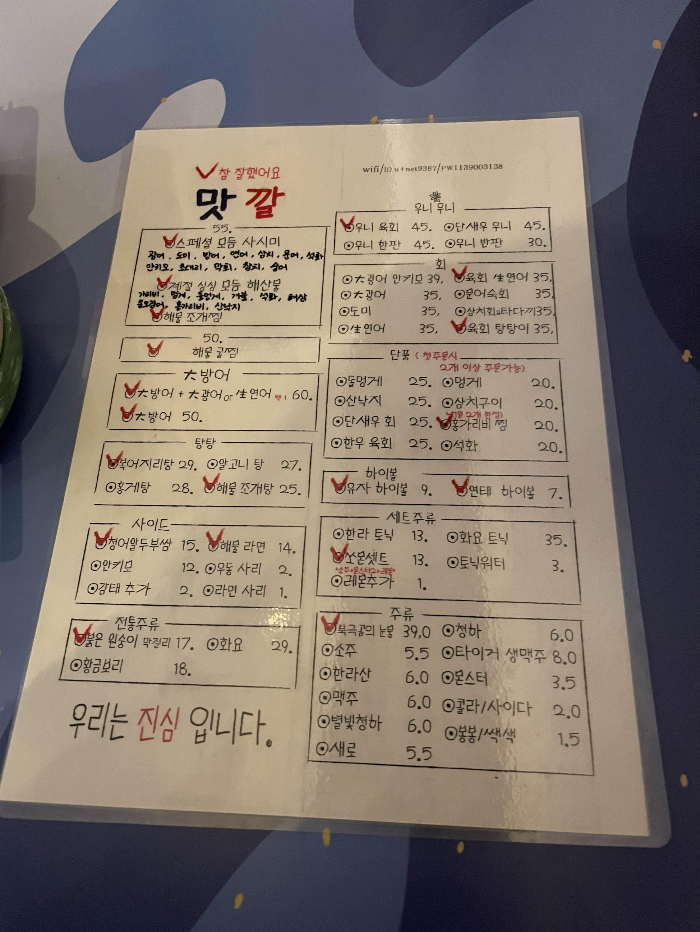 참 잘했어요
맛깔
wifi/ID u+net9387/PW1139003138
55.
스페셜 모듬 사시미
광어, 도미, 방어, 연어, 삼치, 문어, 석화
안키모, 초대리, 막회, 참치, 숭어
제철 싱싱 모듬 해산물
가리비, 멍게, 돌멍게, 개불, 석화, 해삼
홍가리비, 산낙지
해물 조개찜
50.
해물 굴찜
大방어
大방어 + 大광어 or 生연어 60.
大방어 50.
탕탕
북어지리탕 29. 알고니 탕 27.
홍게탕 28. 해물 조개탕 25.
사이드
청어알두부쌈 15. 해물 라면 14.
안키모 12. 우동 사리 2.
감태 추가 2. 라면 사리 1.
전통주류
붉은 원숭이 막걸리 17. 화요 29.
황금보리 18.
우리는 진심 입니다.
우니 우니
우니 육회 45. 단새우 우니 45.
우니 한판 45. 우니 반판 30.
회
大광어 안키모 39, 육회 生연어 35,
大광어 35, 문어숙회 35.
도미 35, 삼치회or타다끼 35,
生연어 35, 육회 탕탕이 35,
단품 (첫주문시
2개 이상 주문가능)
돌멍게 25. 멍게 20.
산낙지 25. 삼치구이 20.
단새우 회 25. 홍가리비 찜 20.
한우 육회 25. 석화 20.
하이볼
유자 하이볼 9. 연태 하이볼 7.
세트주류
한라 토닉 13. 화요 토닉 35.
쏘몬셋트 13. 토닉워터 3.
소주+몬스터+레몬
레몬추가 1.
주류
북극곰의 눈물 39,0 청하 6.0
소주 5.5 타이거 생맥주 8.0
한라산 6.0 몬스터 3.5
맥주 6.0 콜라/사이다 2.0
별빛청하 6.0 봉봉/쌕쌕 1.5
새로 5.5